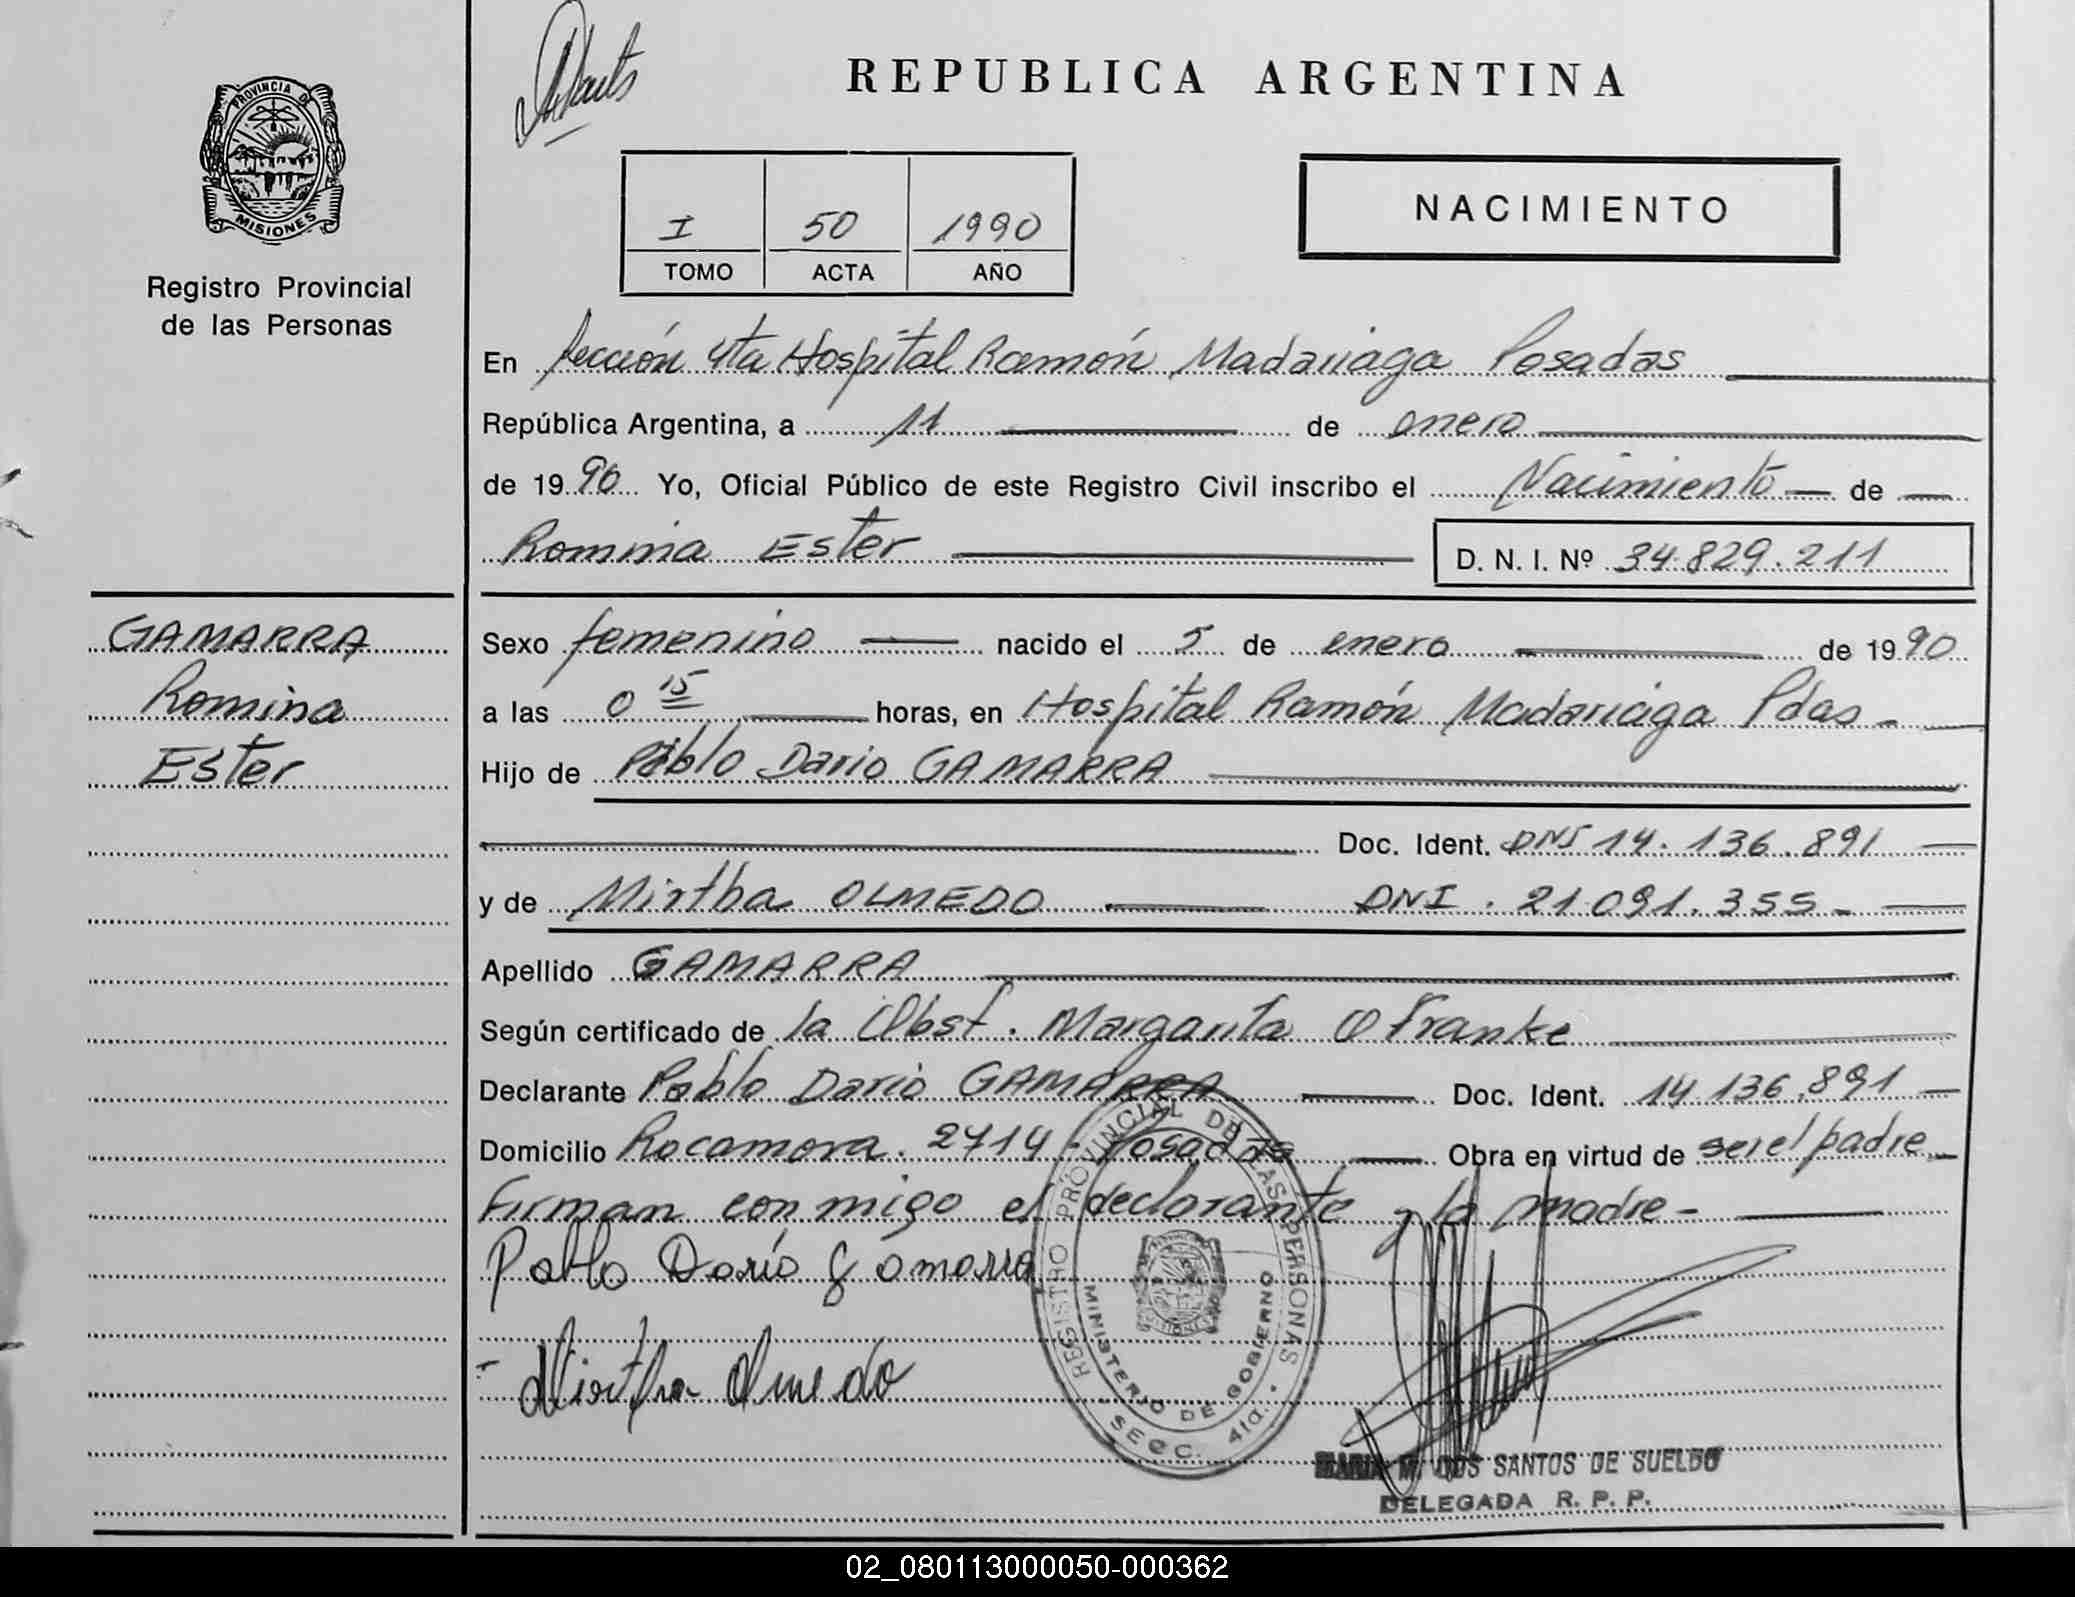 REPUBLICA ARGENTINA
PROVINCIA DE
MISIONES
Registro Provincial
de las Personas
I 50 1990
TOMO ACTA AÑO
NACIMIENTO
En Sección 4ta Hospital Ramón Madariaga Posadas
República Argentina, a 11 de enero
de 1990 Yo, Oficial Público de este Registro Civil inscribo el Nacimiento de
Romina Ester D. N. I. Nº 34.829.211
GAMARRA
Romina
Ester
Sexo femenino nacido el 5 de enero de 1990
a las 0 15 horas, en Hospital Ramón Madariaga Pdas -
Hijo de Pablo Dario GAMARRA
Doc. Ident. DNI 14.136.891
y de Mirtha OLMEDO DNI . 21.091.355 -
Apellido GAMARRA
Según certificado de la Obst. Margarita O Franke
Declarante Pablo Dario GAMARRA Doc. Ident. 14.136.891
Domicilio Rocamora. 2714 - Posadas Obra en virtud de ser el padre
Firman conmigo el declarante y la madre -
Pablo Darío Gamarra
Mirtha Olmedo
REGISTRO PROVINCIAL DE LAS PERSONAS
MINISTERIO DE GOBIERNO
SECC. 4ta.
MARIA M. DOS SANTOS DE SUELDO
DELEGADA R. P. P.
02_080113000050-000362